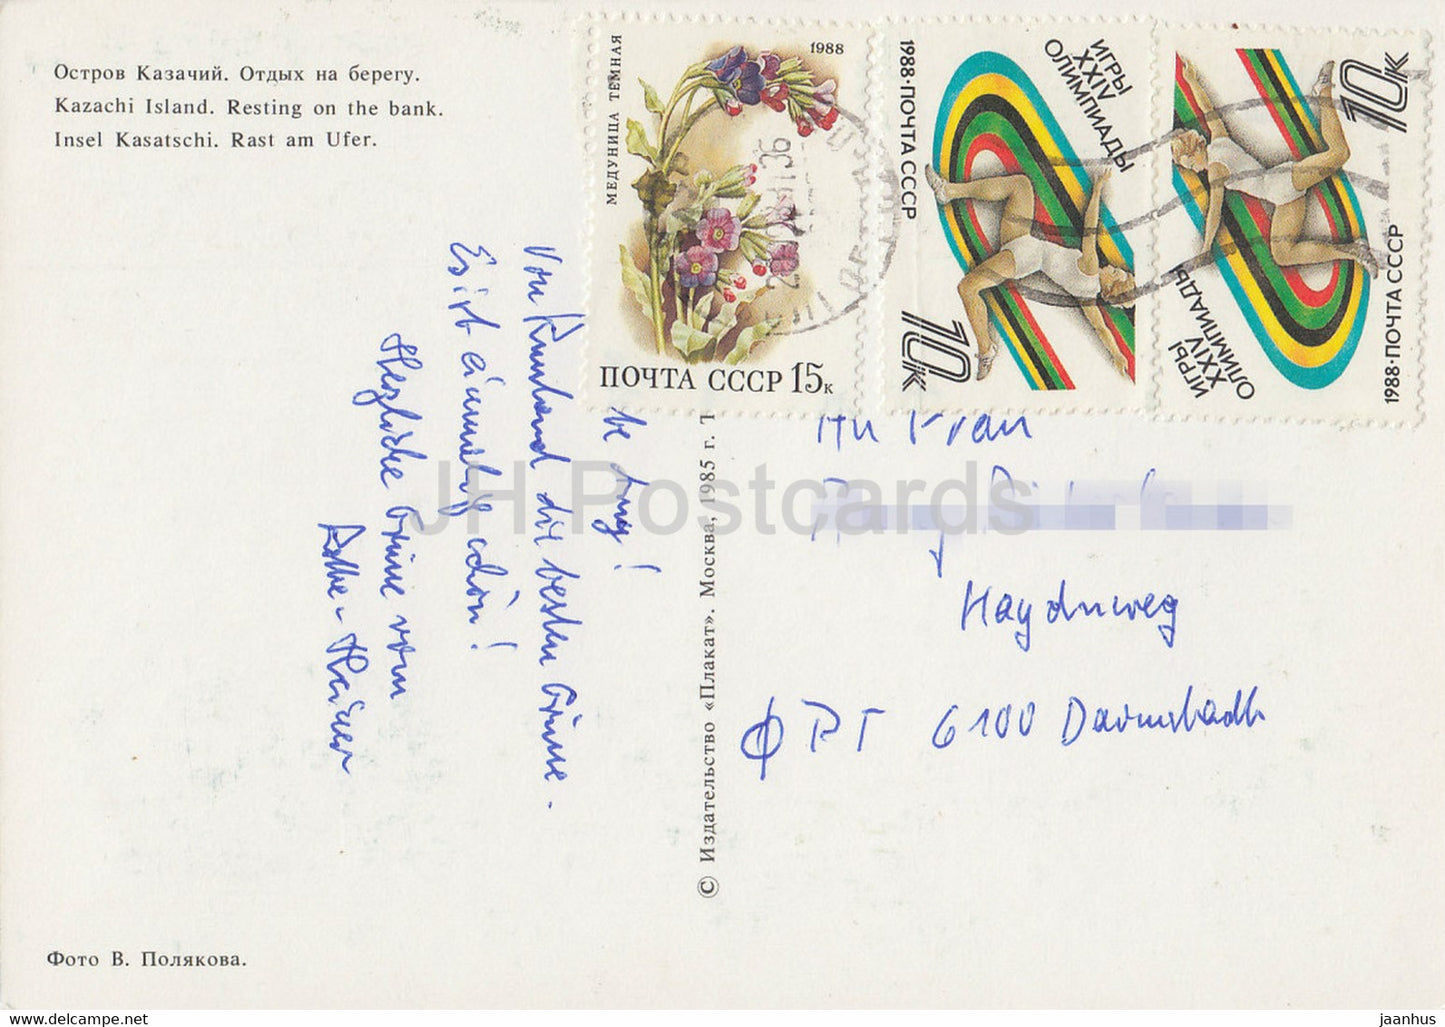 Остров Казачий. Отдых на берегу.
Kazachi Island. Resting on the bank.
Insel Kasatschi. Rast am Ufer.
МЕДУНИЦА ТЕМНАЯ
1988
ПОЧТА СССР 15к
1988·ПОЧТА СССР
ИГРЫ
XXIV
ОЛИМПИАДЫ
10к
1988·ПОЧТА СССР
ИГРЫ
XXIV
ОЛИМПИАДЫ
10к
be
Von dir besten Grüne-
Es ist schön!
Herzliche Grüne vom
Rainer
An Frau
Haydnweg
ФРГ 6100 Darmstadt
© Издательство «Плакат». Москва, 1985 г. Т
Фото В. Полякова.
JH Postcards
www.delcampe.net
jaanhus